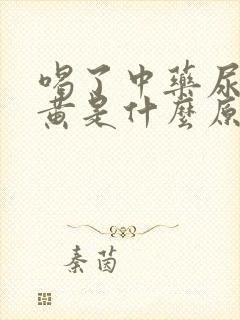 喝了中藥尿
黄是什麼原
秦茵